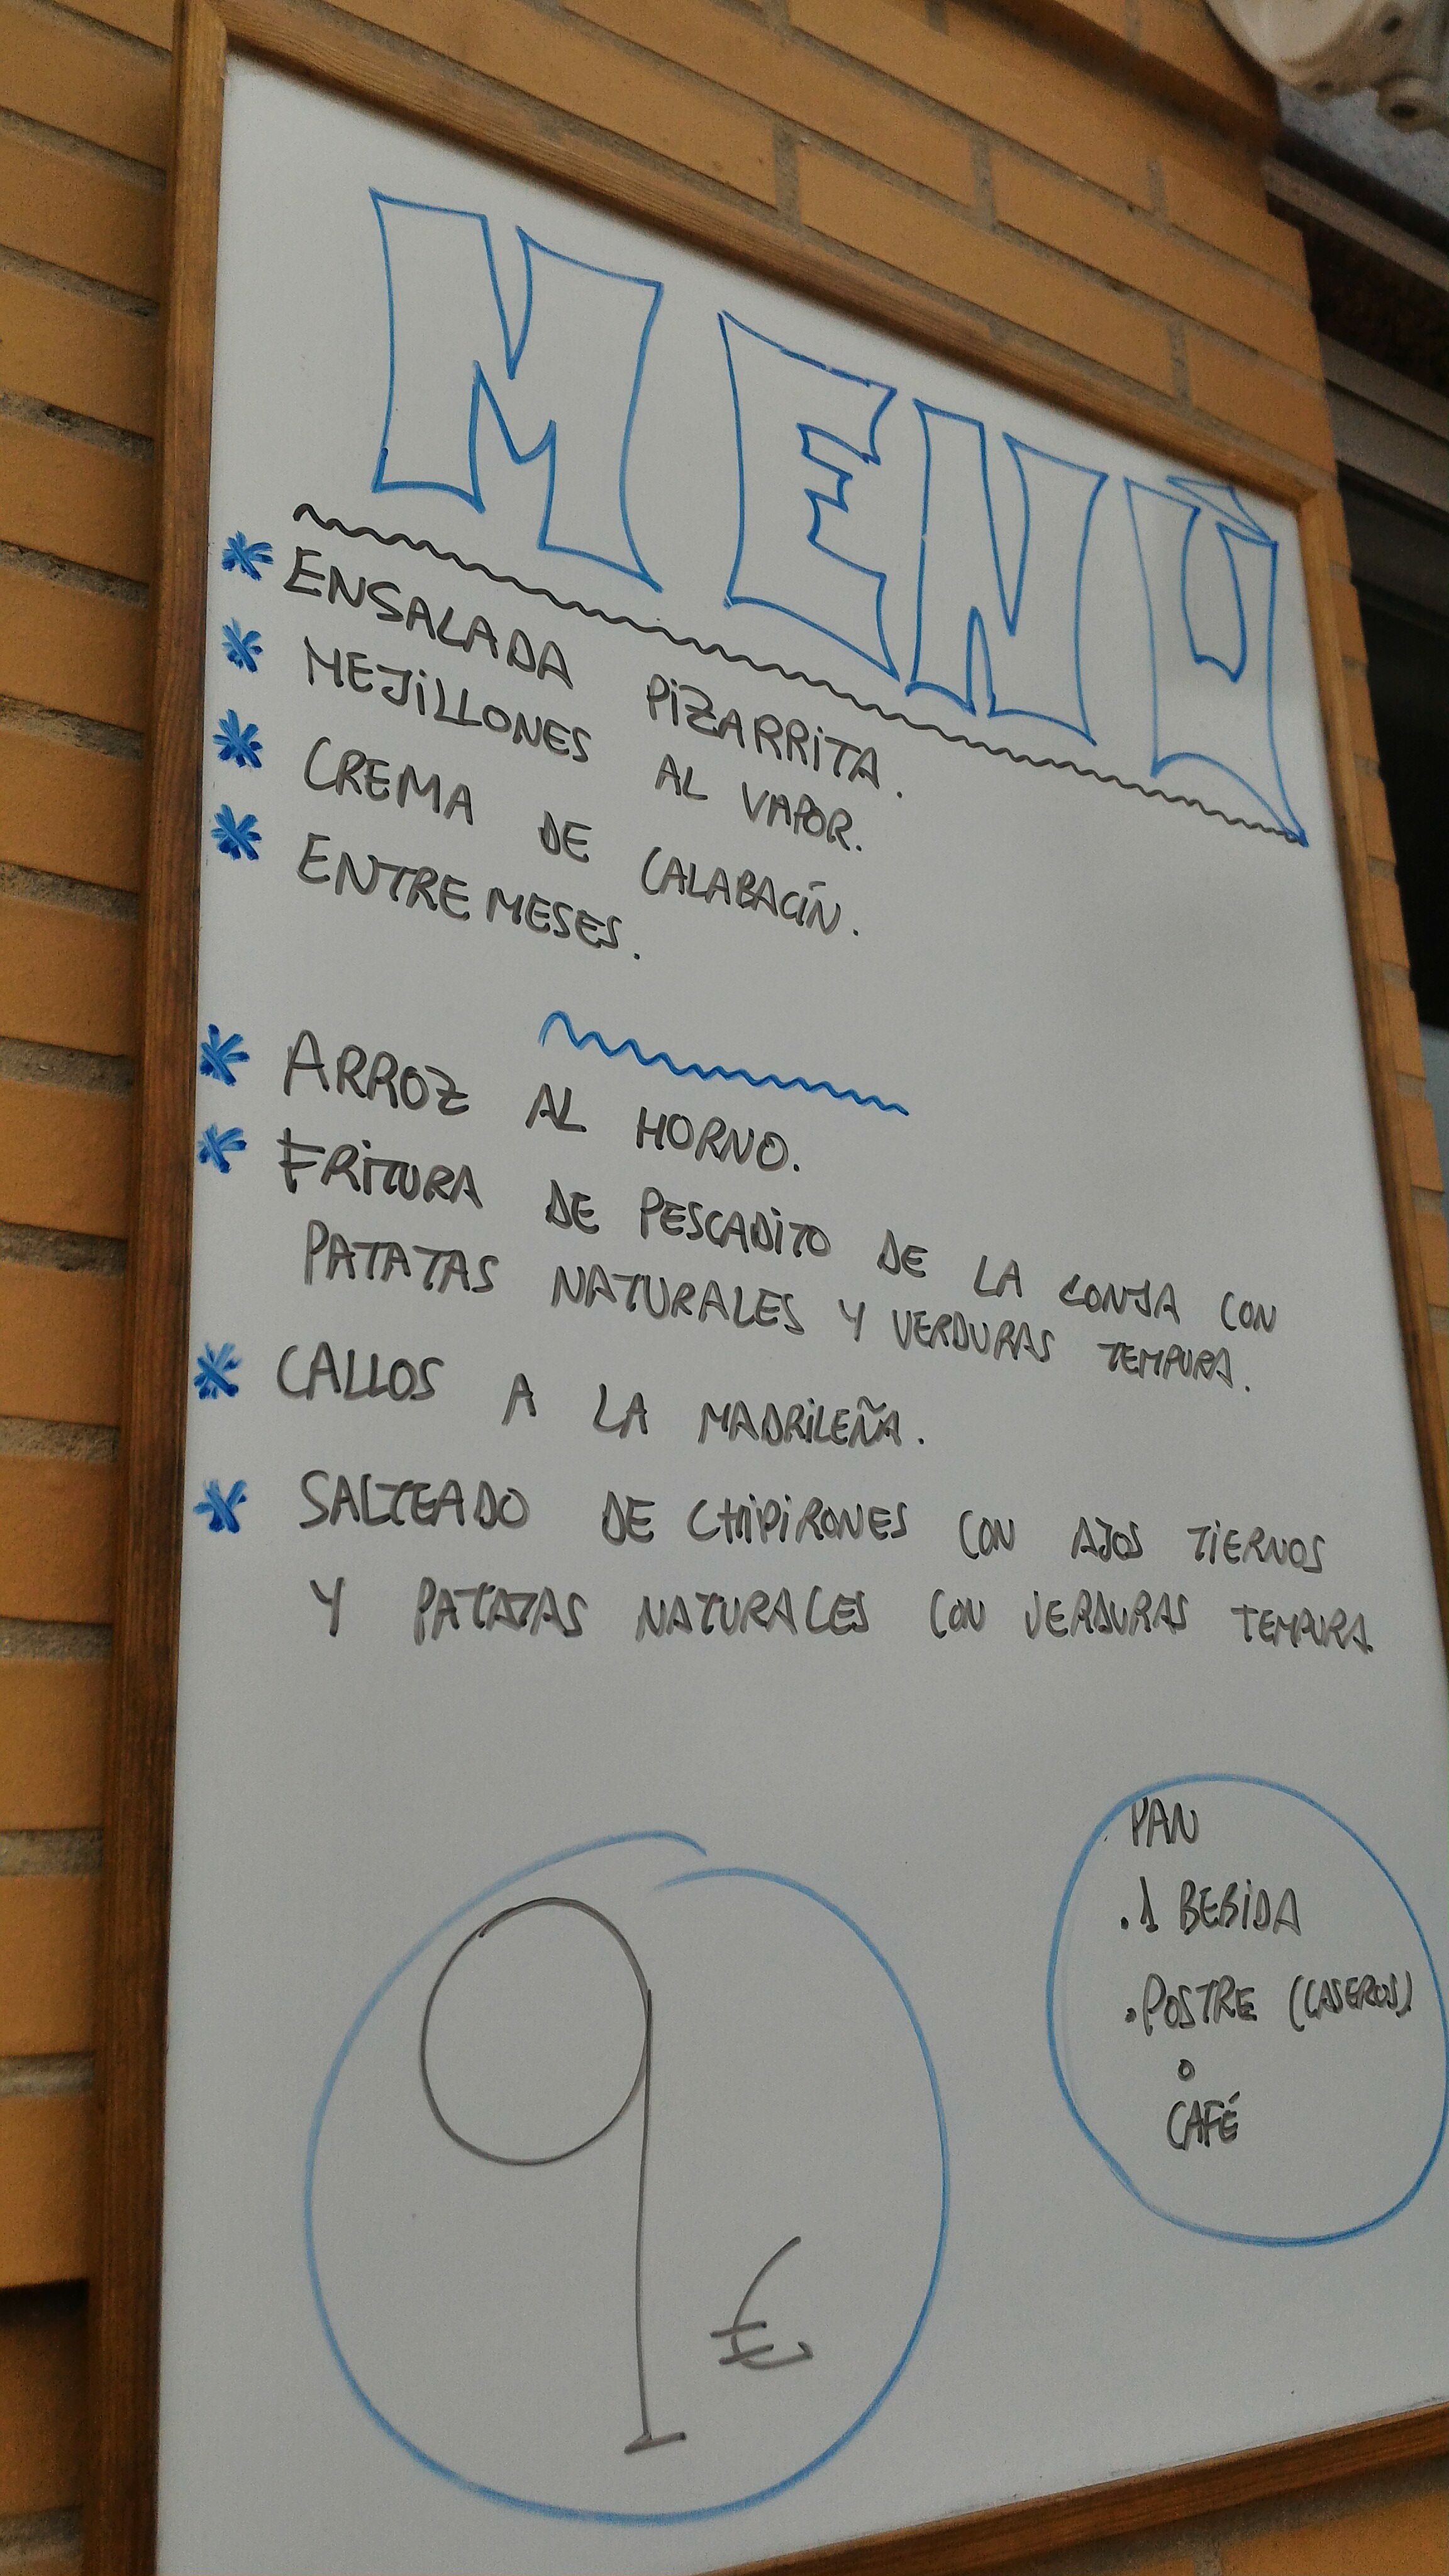 MENÚ
* ENSALADA PIZARRITA.
* MEJILLONES AL VAPOR.
* CREMA DE CALABACÍN.
* ENTREMESES.
* ARROZ AL HORNO.
* FRITURA DE PESCADITO DE LA LONJA CON
PATATAS NATURALES Y VERDURAS TEMPURA.
* CALLOS A LA MADRILEÑA.
* SALTEADO DE CHIPIRONES CON AJOS TIERNOS
Y PATATAS NATURALES CON VERDURAS TEMPURA
PAN
. 1 BEBIDA
. POSTRE (CASEROS)
o
CAFÉ
9 €